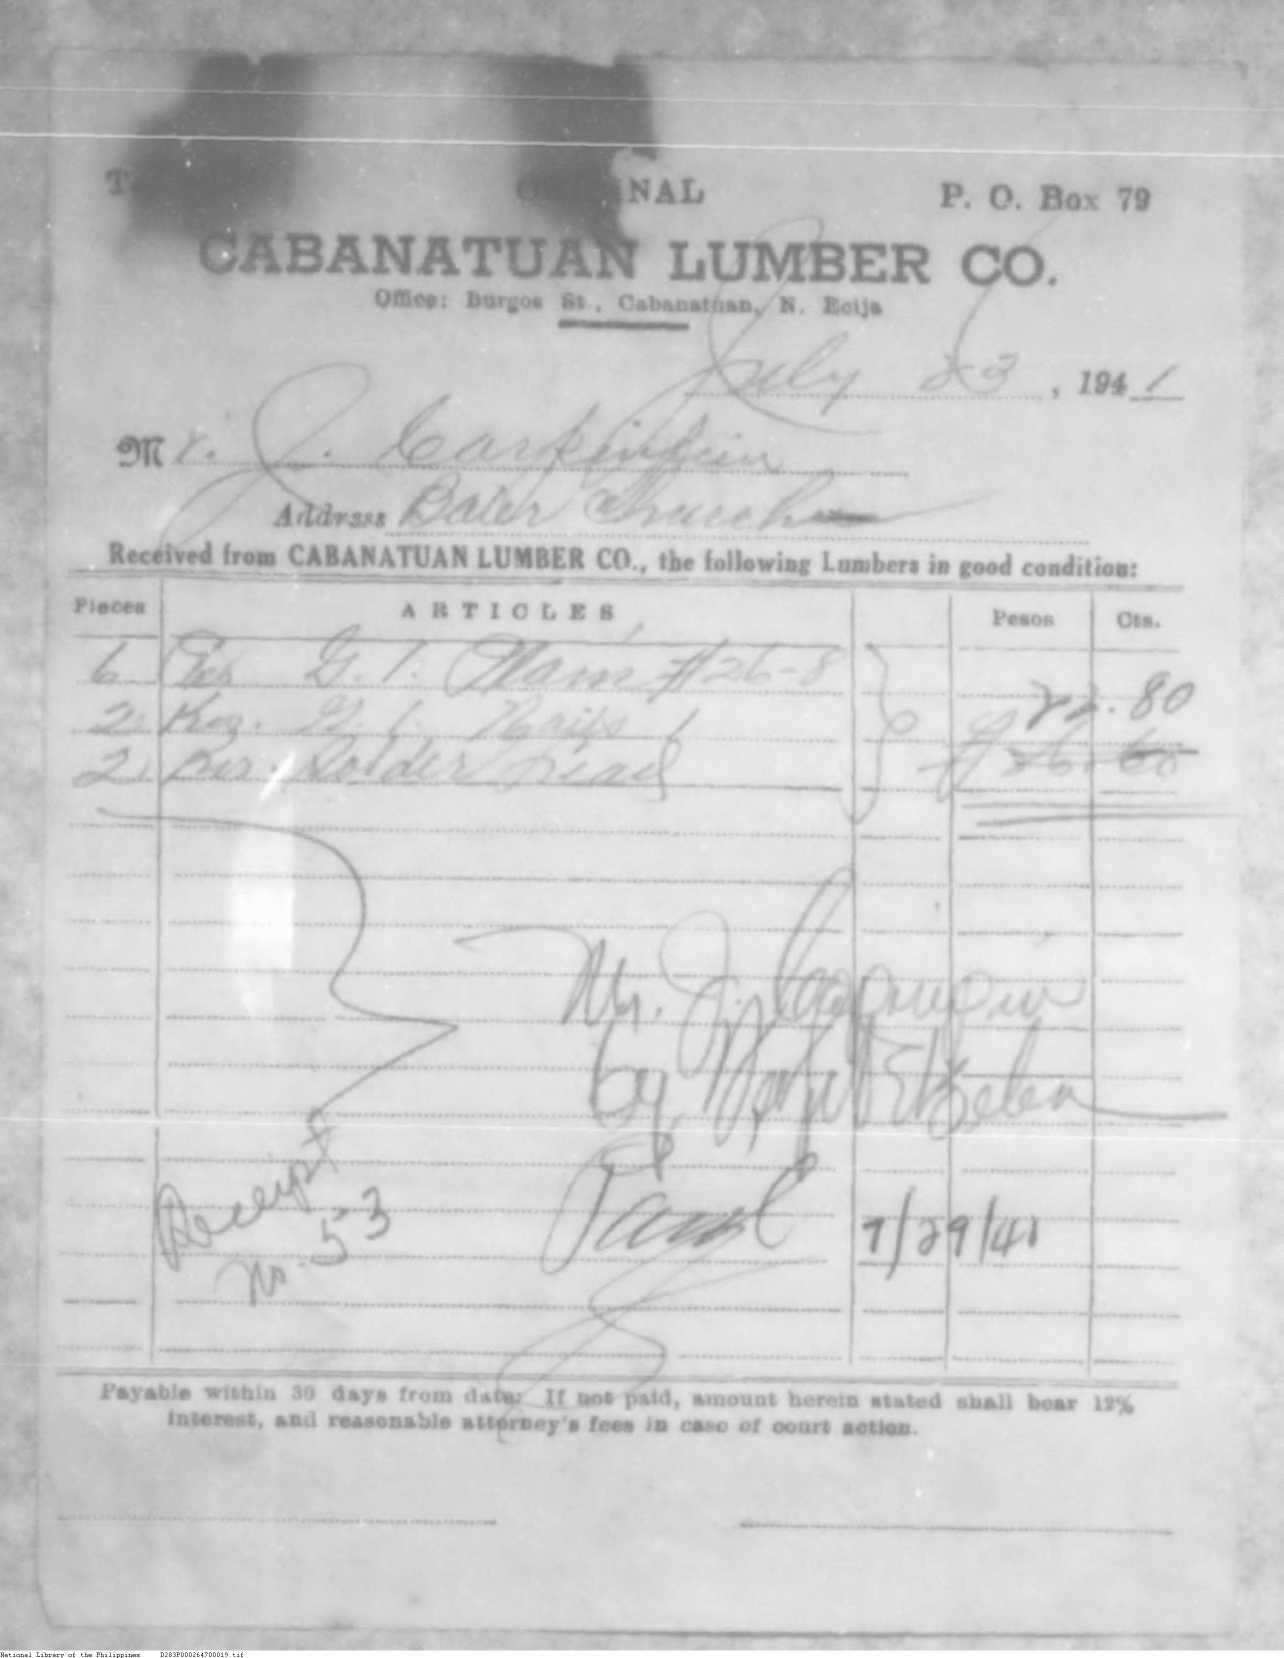 ORIGINAL
P. O. Box 79
CABANATUAN LUMBER CO.
Office: Burgos St., Cabanatuan, N. Ecija
July 23, 1941
Mr. J.
Address Baler Church
Received from CABANATUAN LUMBER CO., the following Lumbers in good condition:
Pieces ARTICLES Pesos Cts.
6 G. I. Plain #26-8
2 Kg. G. I. Nails 22.80
2 Solder Lead
Mr. J.
by
Paid 7/29/41
Receipt
No. 53
Payable within 30 days from date: If not paid, amount herein stated shall bear 12%
interest, and reasonable attorney's fees in case of court action.
National Library of the Philippines D283P000264700019.tif